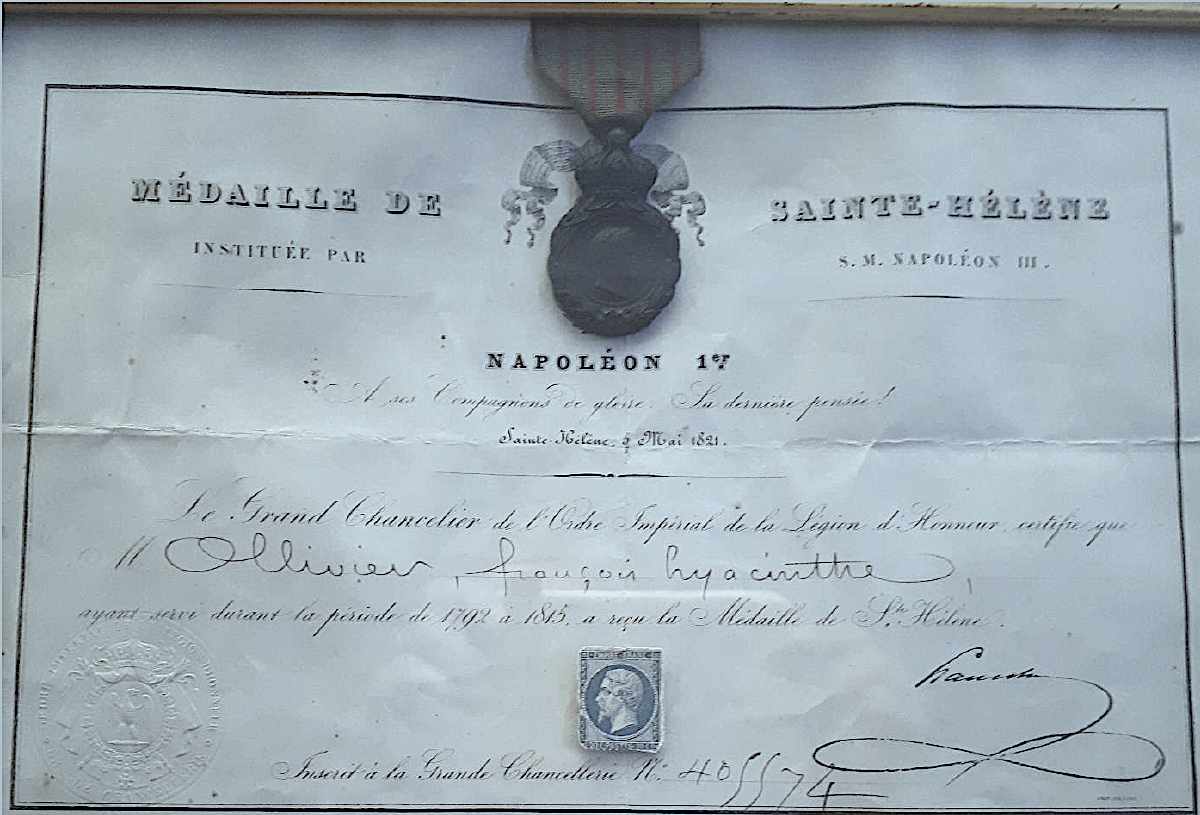 MÉDAILLE DE SAINTE-HÉLÈNE
INSTITUÉE PAR S. M. NAPOLÉON III.
NAPOLÉON 1er
A ses Compagnons de gloire. Sa dernière pensée!
Sainte-Hélène, 5 Mai 1821.
Le Grand Chancelier de l'Ordre Impérial de la Légion d'Honneur, certifie que
M Ollivier, françois hyacinthe,
ayant servi durant la période de 1792 à 1815, a reçu la Médaille de Ste Hélène.
EMPIRE FRANC
Inscrit à la Grande Chancellerie No. 405574